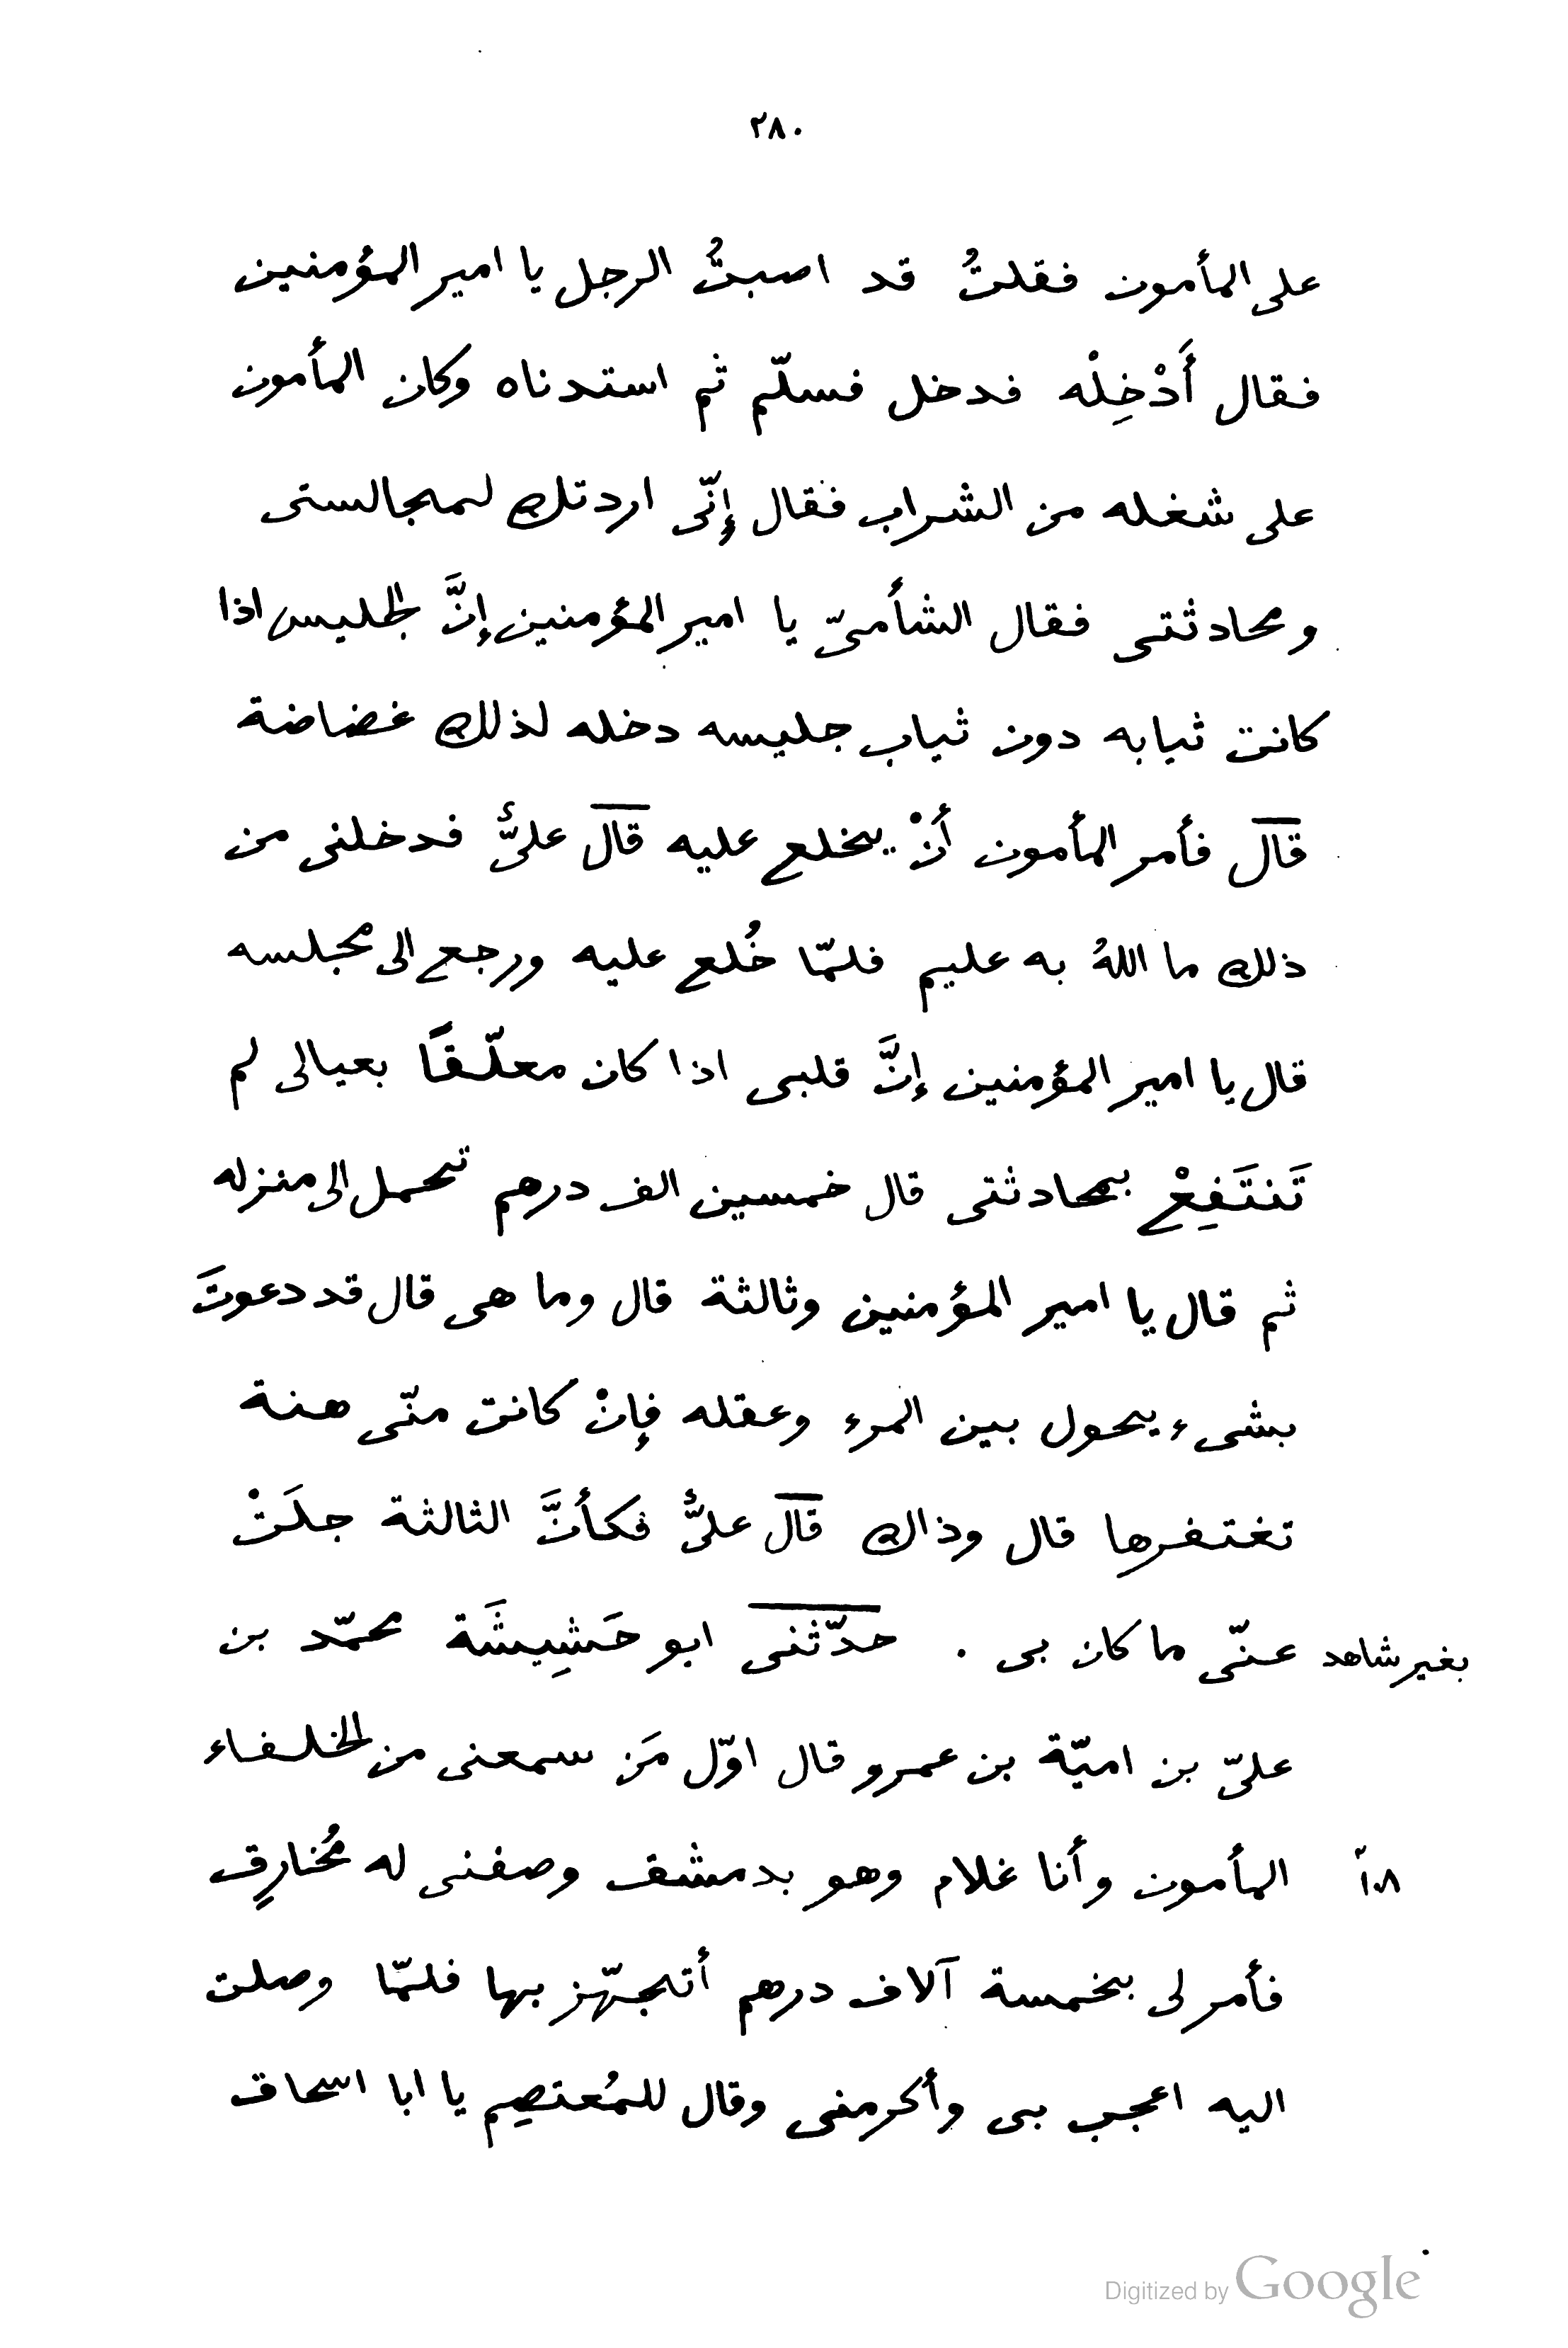 ٢٨٠
على المأمون فقلتُ قد اصبتُ الرجل يا امير المؤمنين
فقال أَدْخِلْه فدخل فسلّم ثم استدناه وكان المأمون
على شغله من الشراب فقال إنّى اردتك لمجالستى
ومحادثتى فقال الشأمىّ يا امير المؤمنين إنَّ الجليس اذا
كانت ثيابه دون ثياب جليسه دخله لذلك غضاضة
قال فأمر المأمون أنْ يخلع عليه قال علىٌّ فدخلنى من
ذلك ما اللهُ به عليم فلمّا خُلع عليه ورجع الى مجلسه
قال يا امير المؤمنين إنَّ قلبى اذا كان معلّقًا بعيالى لم
تَنتَفِعْ بمحادثتى قال خمسين الف درهم تحمل الى منزله
ثم قال يا امير المؤمنين وثالثة قال وما هى قال قد دعوتَ
بشىء يحول بين المرء وعقله فإنْ كانت منّى هنة
تغتفرها قال وذاك قال علىٌّ فكأنَّ الثالثة جلَتْ
عنّى ما كان بى . حدّثنى ابو حَشِيشَة محمّد بن
بغير شاهد
علىّ بن اميّة بن عمرو قال اوّل مَن سمعنى من الخلفاء
المأمون وأنا غلام وهو بدمشق وصفنى له مُخارِق
١٠٨آ
فأمر لى بخمسة آلاف درهم أتجهّز بها فلمّا وصلت
اليه اعجب بى وأكرمنى وقال للمُعتصِم يا ابا اسحاق
Digitized by Google